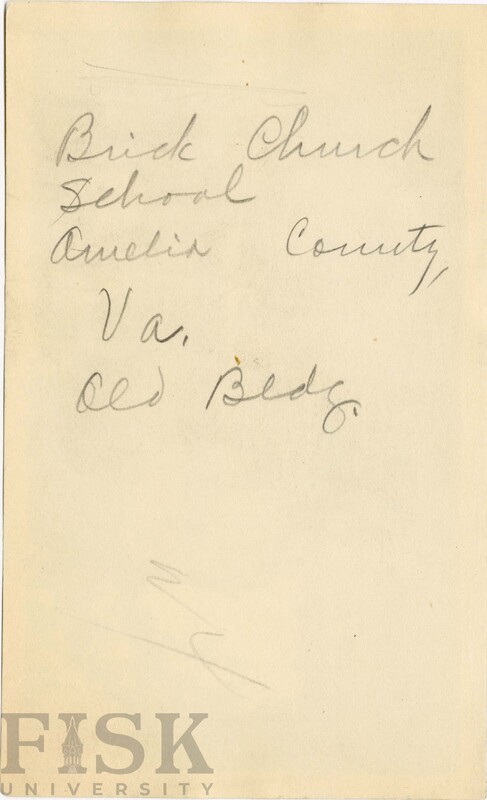 Brick Church
School
Amelia County,
Va.
Old Bldg.
FISK
UNIVERSITY